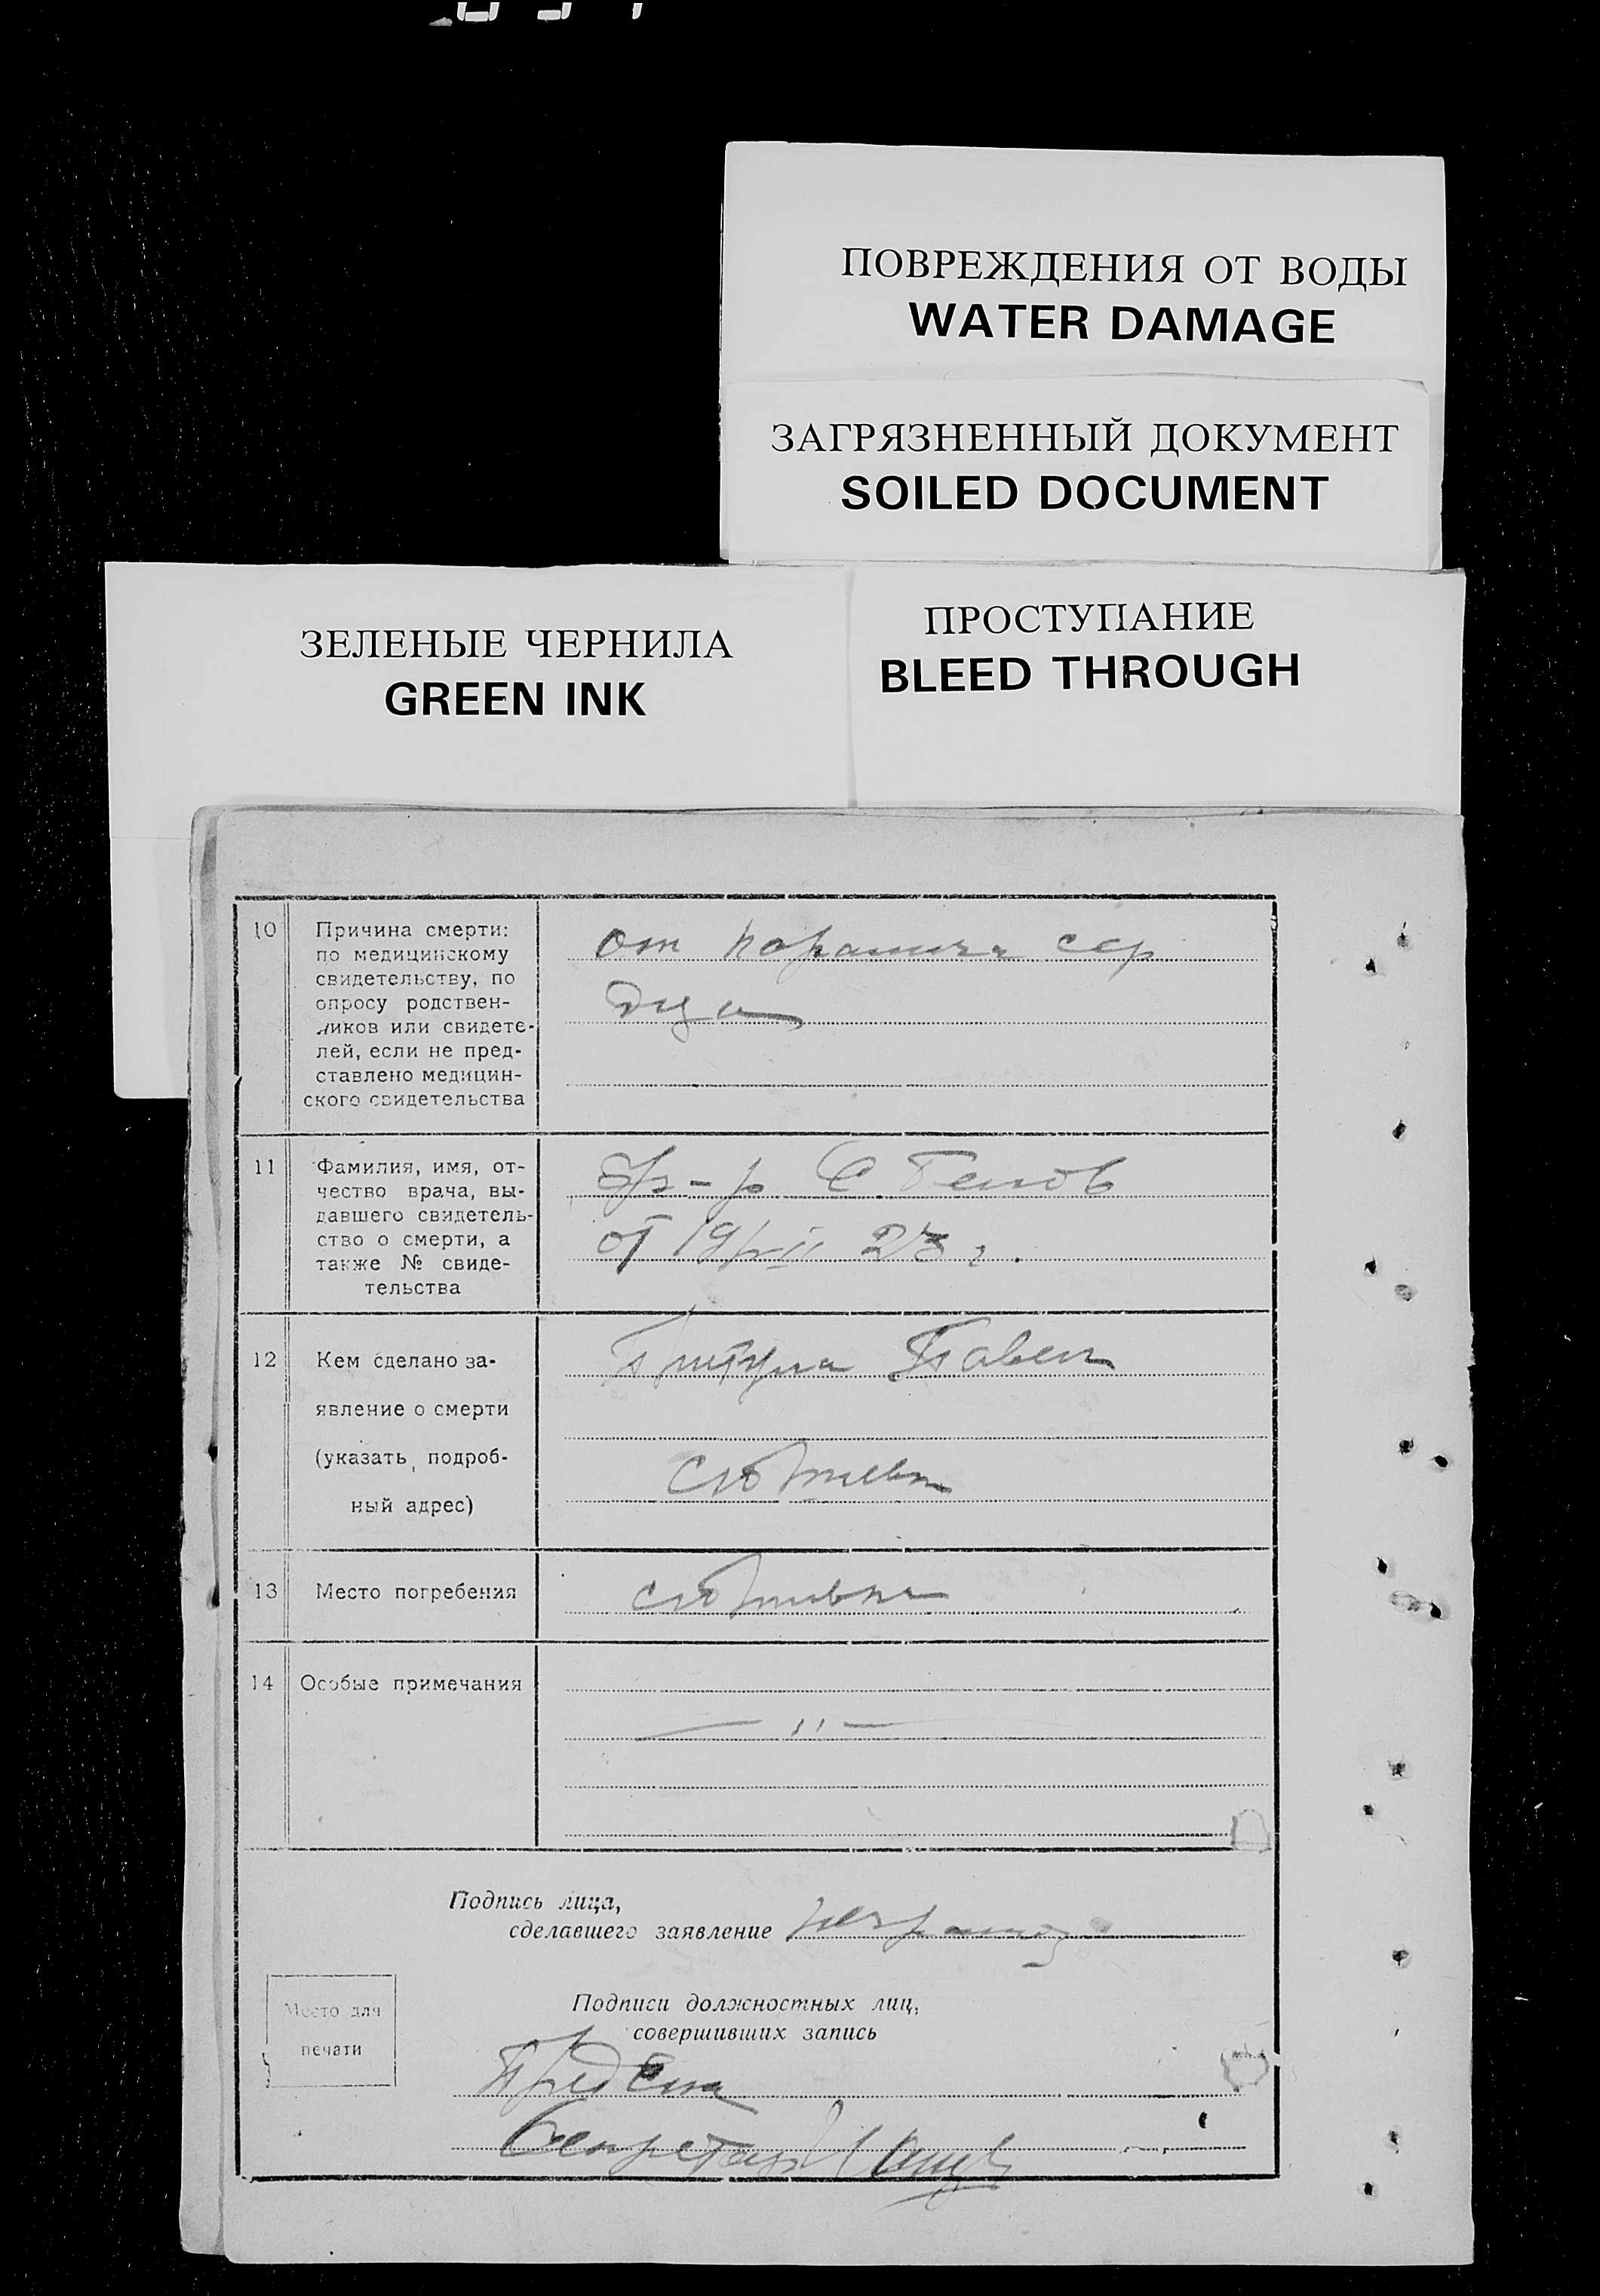 ПОВРЕЖДЕНИЯ ОТ ВОДЫ
WATER DAMAGE
ЗАГРЯЗНЕННЫЙ ДОКУМЕНТ
SOILED DOCUMENT
ЗЕЛЕНЫЕ ЧЕРНИЛА
GREEN INK
ПРОСТУПАНИЕ
BLEED THROUGH
10
Причина смерти:
по медицинскому
свидетельству, по
опросу родствен-
ников или свидете-
лей, если не пред-
ставлено медицин-
ского свидетельства
от сер
дца
11
Фамилия, имя, от-
чество врача, вы-
давшего свидетель-
ство о смерти, а
также № свиде-
тельства
С.
от 19/
12
Кем сделано за-
явление о смерти
(указать подроб-
ный адрес)
Павел
13
Место погребения
14
Особые примечания
— " —
Подпись лица,
сделавшего заявление
Место для
печати
Подписи должностных лиц,
совершивших запись
Секретарь